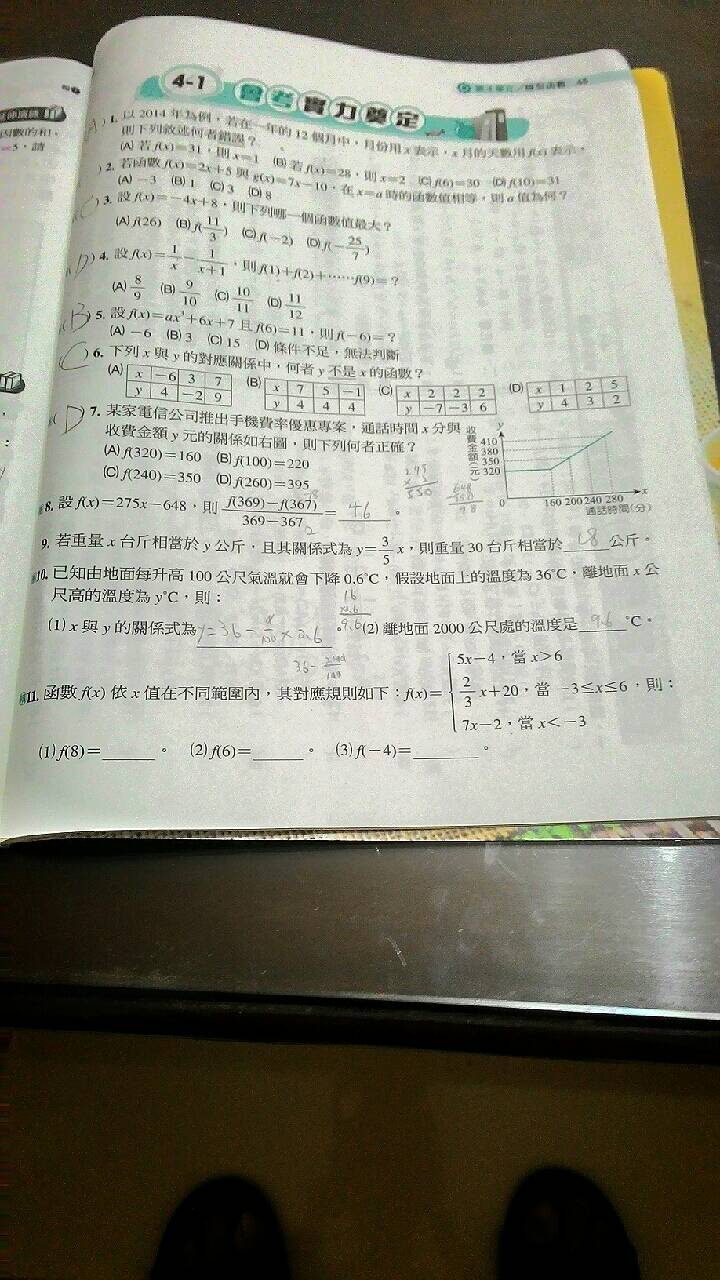 4-1 會考實力奠定
1. 以 2014 年為例，若在一年的 12 個月中，月份用 x 表示，x 月的天數用 f(x) 表示，
則下列敘述何者錯誤？
(A) 若 f(x)=31，則 x=1 (B) 若 f(x)=28，則 x=2 (C) f(6)=30 (D) f(10)=31
2. 若函數 f(x)=2x+5 與 g(x)=7x-10，在 x=a 時的函數值相等，則 a 值為何？
(A) -3 (B) 1 (C) 3 (D) 8
(C) 3. 設 f(x)=-4x+8，則下列哪一個函數值最大？
(A) f(26) (B) f(11/3) (C) f(-2) (D) f(-25/7)
(D) 4. 設 f(x)=1/x - 1/(x+1)，則 f(1)+f(2)+……f(9)=？
(A) 8/9 (B) 9/10 (C) 10/11 (D) 11/12
(B) 5. 設 f(x)=ax²+6x+7 且 f(6)=11，則 f(-6)=？
(A) -6 (B) 3 (C) 15 (D) 條件不足，無法判斷
(C) 6. 下列 x 與 y 的對應關係中，何者 y 不是 x 的函數？
(A) x -6 3 7 (B) x 7 5 -1 (C) x 2 2 2 (D) x 1 2 5
y 4 -2 9 y 4 4 4 y -7 -3 6 y 4 3 2
(D) 7. 某家電信公司推出手機費率優惠專案，通話時間 x 分與
收費金額 y 元的關係如右圖，則下列何者正確？
(A) f(320)=160 (B) f(100)=220
(C) f(240)=350 (D) f(260)=395
收費金額(元)
y
410
380
350
320
0 160 200 240 280 x
通話時間(分)
8. 設 f(x)=275x-648，則 (f(369)-f(367))/(369-367) = 46 。
9. 若重量 x 台斤相當於 y 公斤，且其關係式為 y=3/5 x，則重量 30 台斤相當於 18 公斤。
10. 已知由地面每升高 100 公尺氣溫就會下降 0.6°C，假設地面上的溫度為 36°C，離地面 x 公
尺高的溫度為 y°C，則：
(1) x 與 y 的關係式為 。(2) 離地面 2000 公尺處的溫度是 9.6 °C。
11. 函數 f(x) 依 x 值在不同範圍內，其對應規則如下：f(x)= { 5x-4，當 x>6
2/3 x+20，當 -3≤x≤6，則：
7x-2，當 x<-3
(1) f(8)=______。 (2) f(6)=______。 (3) f(-4)=______。